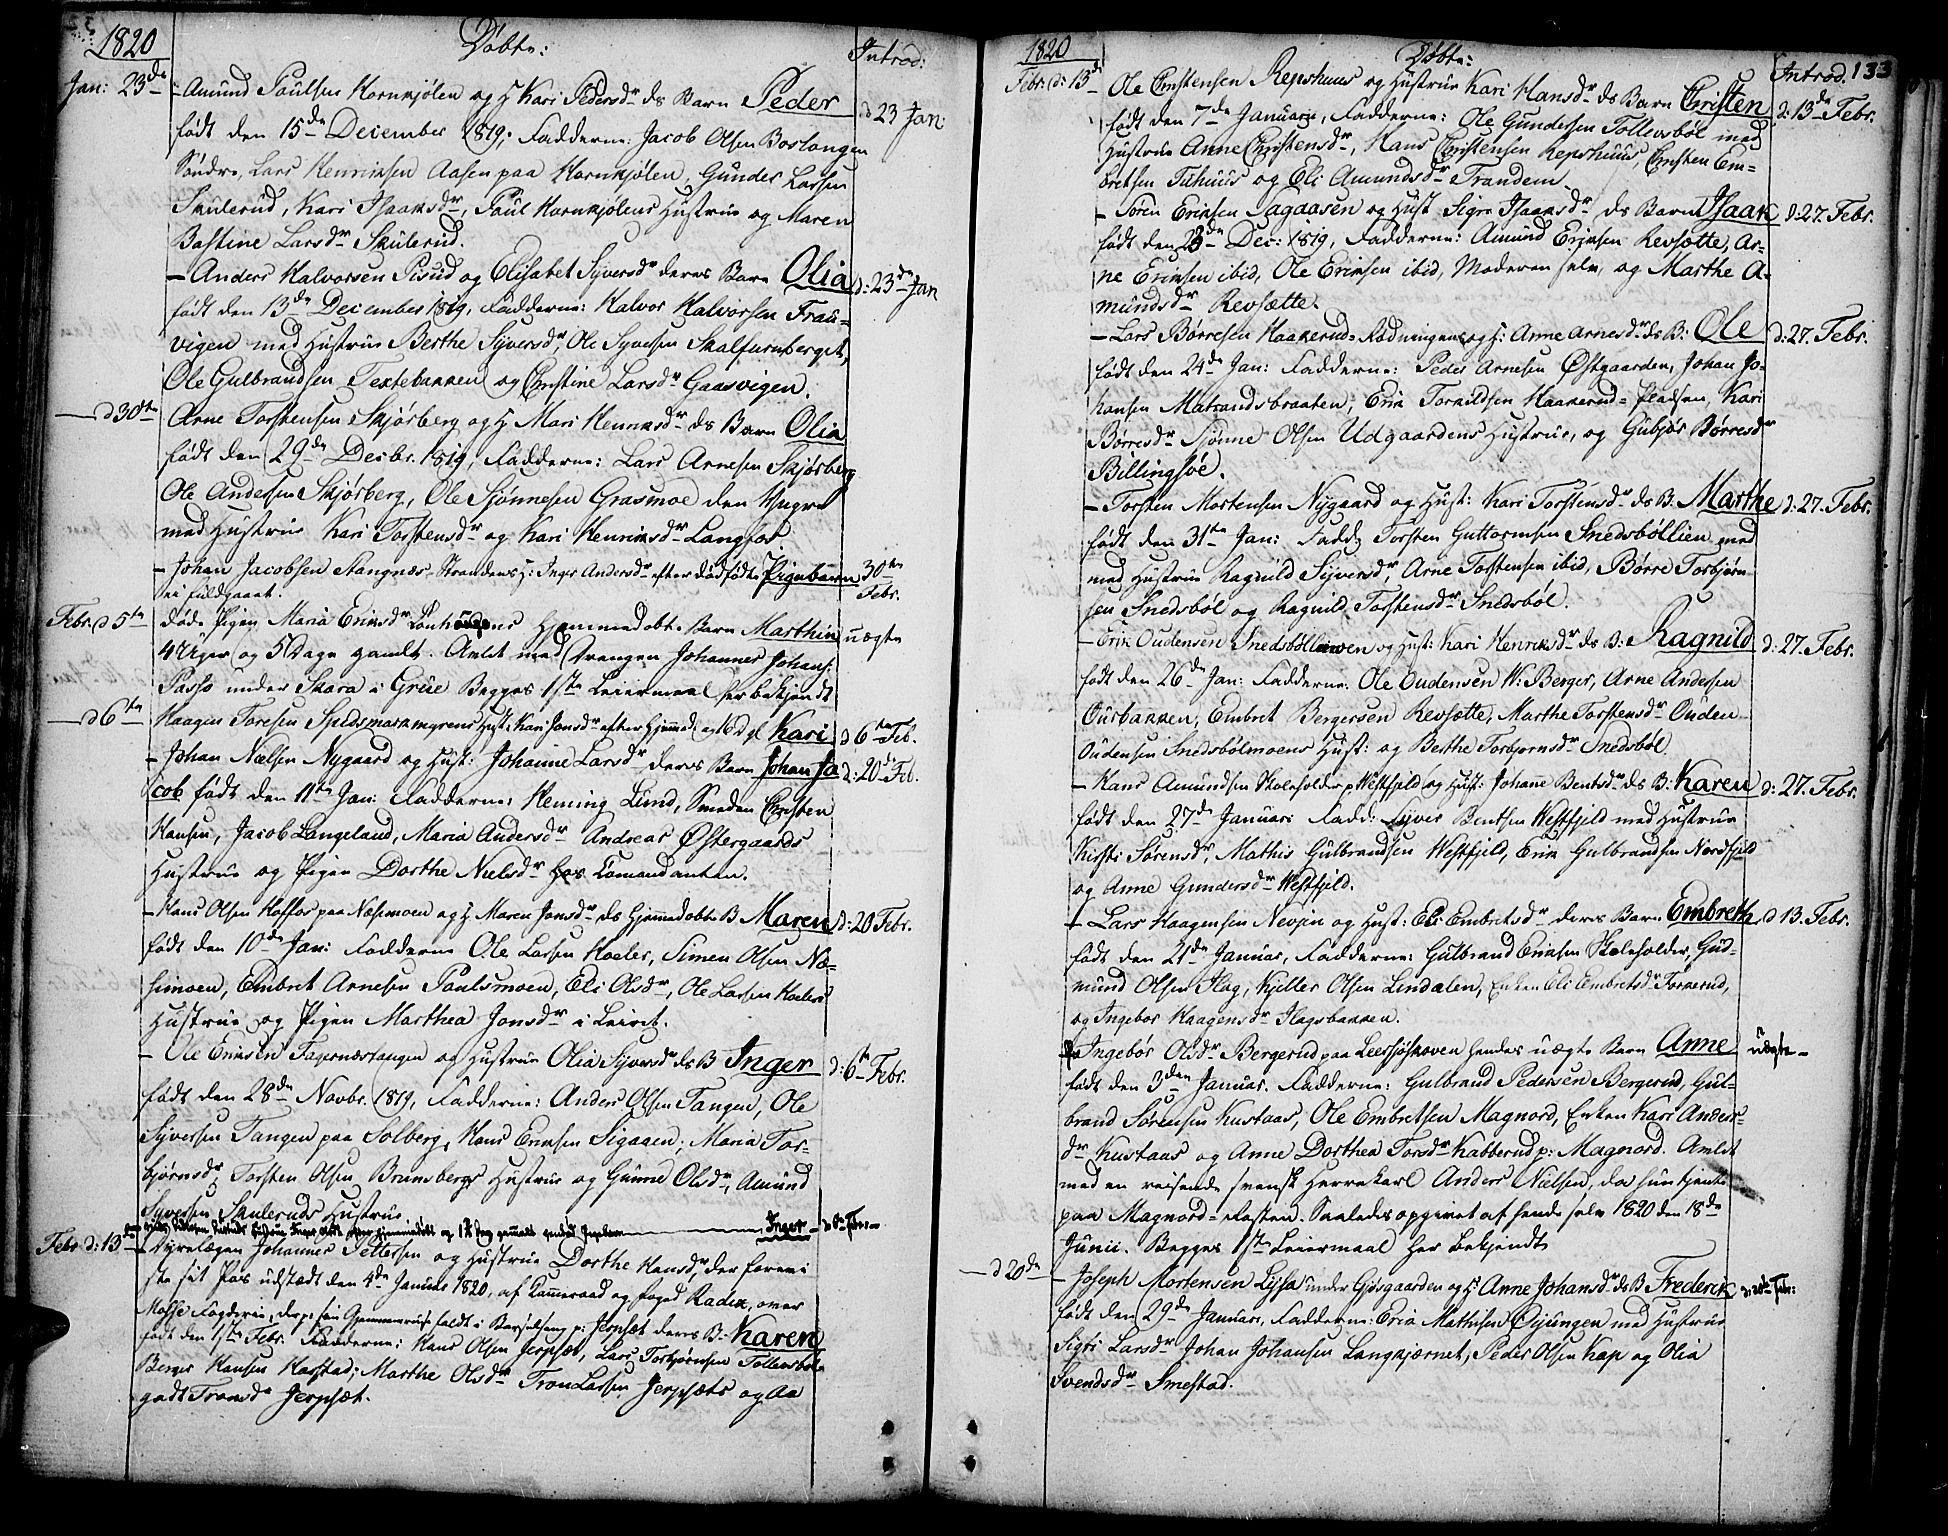 1820 Döbte: Introd:
Jan: 23de – Amund Poulsen Kornkjölen og H Kari Pedersdr ds Barn Peder d 23 Jan:
födt den 15de December 1819, Fadderne: Jacob Olsen Boslangen
Söndre, Lars Henriksen Aasen paa Kornkjölen, Gunder Larsen
Skulerud, Kari Isaaksdr, Poul Kornkjölens Hustrue og Maren
Bastine Larsdr Skulerud.
– Anders Halvorsen Pisud og Elisabet Syversdr deres Barn Olia d: 23de Jan
födt den 13de December 1819, Fadderne: Halvor Halvorsen Frau-
vigen med Hustrue Berthe Syversdr, Ole Syversen Skalfurnberget,
Ole Gulbrandsen Textebakken og Christine Larsdr Gaasvigen.
— d 30te Arne Torstensen Skjörberg og H Mari Henriksdr ds Barn Olia
födt den 29de Decbr. 1819, Fadderne: Lars Arnesen Skjörberg
Ole Andersen Skjörberg, Ole Sjönnesen Grasmoe den Yngre
med Hustrue Kari Torstensdr og Kari Henriksdr Langfos
– Johan Jacobsen Stangnæs-Strandens H: Inger Andersdr efter dödfödte Pigebarn 30te
ei fuldgaaet. Febr.
Febr. d 5te döde Pigen Maria Eriksdr Lonhaugens Hjemmedöbte Barn Marthin uægte
4 Uger og 5 Dage gamle. Avlet med Drengen Johannes Johans:
Passo under Skara i Grue Begges 1ste Leiermaal her bekjendt
— d 6te Haagen Toresen Spedsmarkmyrens Hust: Kari Jonsdr efter Hjemmed: og 16 D gl Kari d 6te Feb.
– Johan Nielsen Nygaard og Hust: Johanne Larsdr deres Barn Johan Ja d: 20de Feb.
cob födt den 11te Jan: Fadderne: Heming Lund, Smeden Christen
Hansen, Jacob Langeland, Maria Andersdr Andreas Østergaards
Hustrue og Pigen Dorthe Nielsdr hos Comandanten.
– Hans Olsen Koffos paa Næsmoen og H Maren Jonsdr ds Hjemmedöbte B Maren d: 20 Febr.
födt den 10de Jan: Fadderne Ole Larsen Koeler, Simen Olsen Næ-
simoen, Embret Arnesen Poulsmoen, Eli Olsdr, Ole Larsen Koelers
Hustrue og Pigen Marthea Jonsdr i Leiret.
– Ole Eriksen Fagernæstangen og Hustrue Olia Syversdr ds B Inger d: 6te Febr.
födt den 28de Novbr. 1819, Fadderne: Anders Olsen Tangen, Ole
Syversen Tangen paa Solberg, Hans Eriksen Sigagen, Maria Tor-
björnsdr, Torsten Olsen Brunsbergs Hustrue og Gunne Olsdr, Amund
Syversen Skuleruds Hustrue.
Inger
Febr d: 13de – Dyrelægen Johannes Pettersen og Hustrue Dorthe Hansdr, der forevi
ste sit Pas udstædt den 4de Januar 1820, af Cammeraad og Foged Radik, over
Mosse Fogderie, deres B: Karen
födt den 1ste Febr. Fadderne: Hans Olsen Jerpset, Lars Torbjörnsen Tollevsböl
Berger Hansen Harstad, Marthe Olsdr Tron Larsen Jerpsæts og Aa
godt Tronsdr Jerpsæt.
1820 Döbte: Introd. 133
Febr. d: 13de Ole Christensen Repshuus og Hustrue Kari Hansdr ds Barn Christen d: 13de Febr.
födt den 7de Januari, Fadderne: Ole Gundersen Tollevsböl med
Hustrue Anne Christensdr, Hans Christensen Repshuus, Christen Em-
bretsen Tuhuus og Eli Amundsdr Trandem.
– Sören Eriksen Sagaasen og Hust Sigre Isaaksdr ds Barn Isaak d: 27. Febr.
födt den 23de Dec: 1819, Fadderne: Amund Eriksen Revsætte, Ar-
ne Eriksen ibid, Ole Eriksen ibid, Moderen selv, og Marthe A-
mundsdr Revsætte.
– Lars Börresen Haakerud-Rödningens og H: Anne Arnesdr ds B: Ole d: 27. Febr.
födt den 24de Jan: Fadderne: Peder Arnesen Østgaarden, Johan Jo-
hansen Matrandsbraaten, Erik Torkildsen Haakerud-Pladsen, Kari
Börresdr Sjönne Olsen Udgaardens Hustrue, og Gubjör Börresdr
Billingsöe.
– Torsten Mortensen Nygaard og Hust: Kari Torstensdr ds B. Marthe d: 27. Febr.
födt den 31te Jan: Fadd: Torsten Guttormsen Snedsböllien med
med Hustrue Ragnild Syversdr, Arne Torstensen ibid, Börre Torbjörn
sen Snedsböl og Ragnild Torstensdr Snedsböl.
– Erik Oudensen Snedsbölleiren og Hust: Kari Henriksdr ds B: Ragnild d: 27. Febr.
födt den 26de Jan: Fadderne: Ole Oudensen W: Berger, Arne Andersen
Ousbakken, Embret Bergersen Revsætte, Marthe Torstensdr Ouden
Oudensen Snedsbölmoens Hust: og Berthe Torbjornsdr Snedsböl.
– Hans Amundsen Skoleholder p Westfjeld og Hust: Johane Bentsdr ds B: Karen d: 27. Febr.
födt den 27de Januari Fadd: Syver Bentsen Westfjeld med Hustrue
Kirsti Sörensdr, Mathis Gulbrandsen Westfjeld, Erik Gulbrandsen Nordfjeld
og Anne Gundersdr Westfjeld.
– Lars Haagensen Nevjen og Hust: Eli Embretsdr deres Barn Embreth d 13. Febr.
födt den 21de Januar, Fadderne: Gulbrand Eriksen Skoleholder, Gud-
mund Olsen Flag, Kjeller Olsen Lindalen, Enken Eli Embretsdr Tornerud,
og Ingebor Haagensdr Flagsbakken.
– Ingebör Olsdr Bergerud paa Leersjöskoven hendes uægte Barn Anne uægte –
födt den 3den Januar. Fadderne: Gulbrand Pedersen Bergerud, Gul-
brand Sörensen Kustaas, Ole Embretsen Magnord, Enken Kari Anders-
dr Kustaas og Anne Dorthea Torsdr Kabberud p: Magnord. Avlet
med en reisende svensk Herrekarl Anders Nielsen, da hun tjente
paa Magnord-Østen. Saaledes opgivet af hende selv 1820 den 18de
Junii. Begges 1ste Leiermaal her bekjendt
— d 20de – Joseph Mortensen Lissa under Gjösgaarden og H Anne Johansdr ds B Frederik d: 20de Feb:
födt den 29de Januari, Fadderne: Erik Mathisen Øijungen med Hustrue
Sigri Larsdr Johan Johansen Langkjærnet, Peder Olsen Kap og Olia
Svendsdr Smestad.